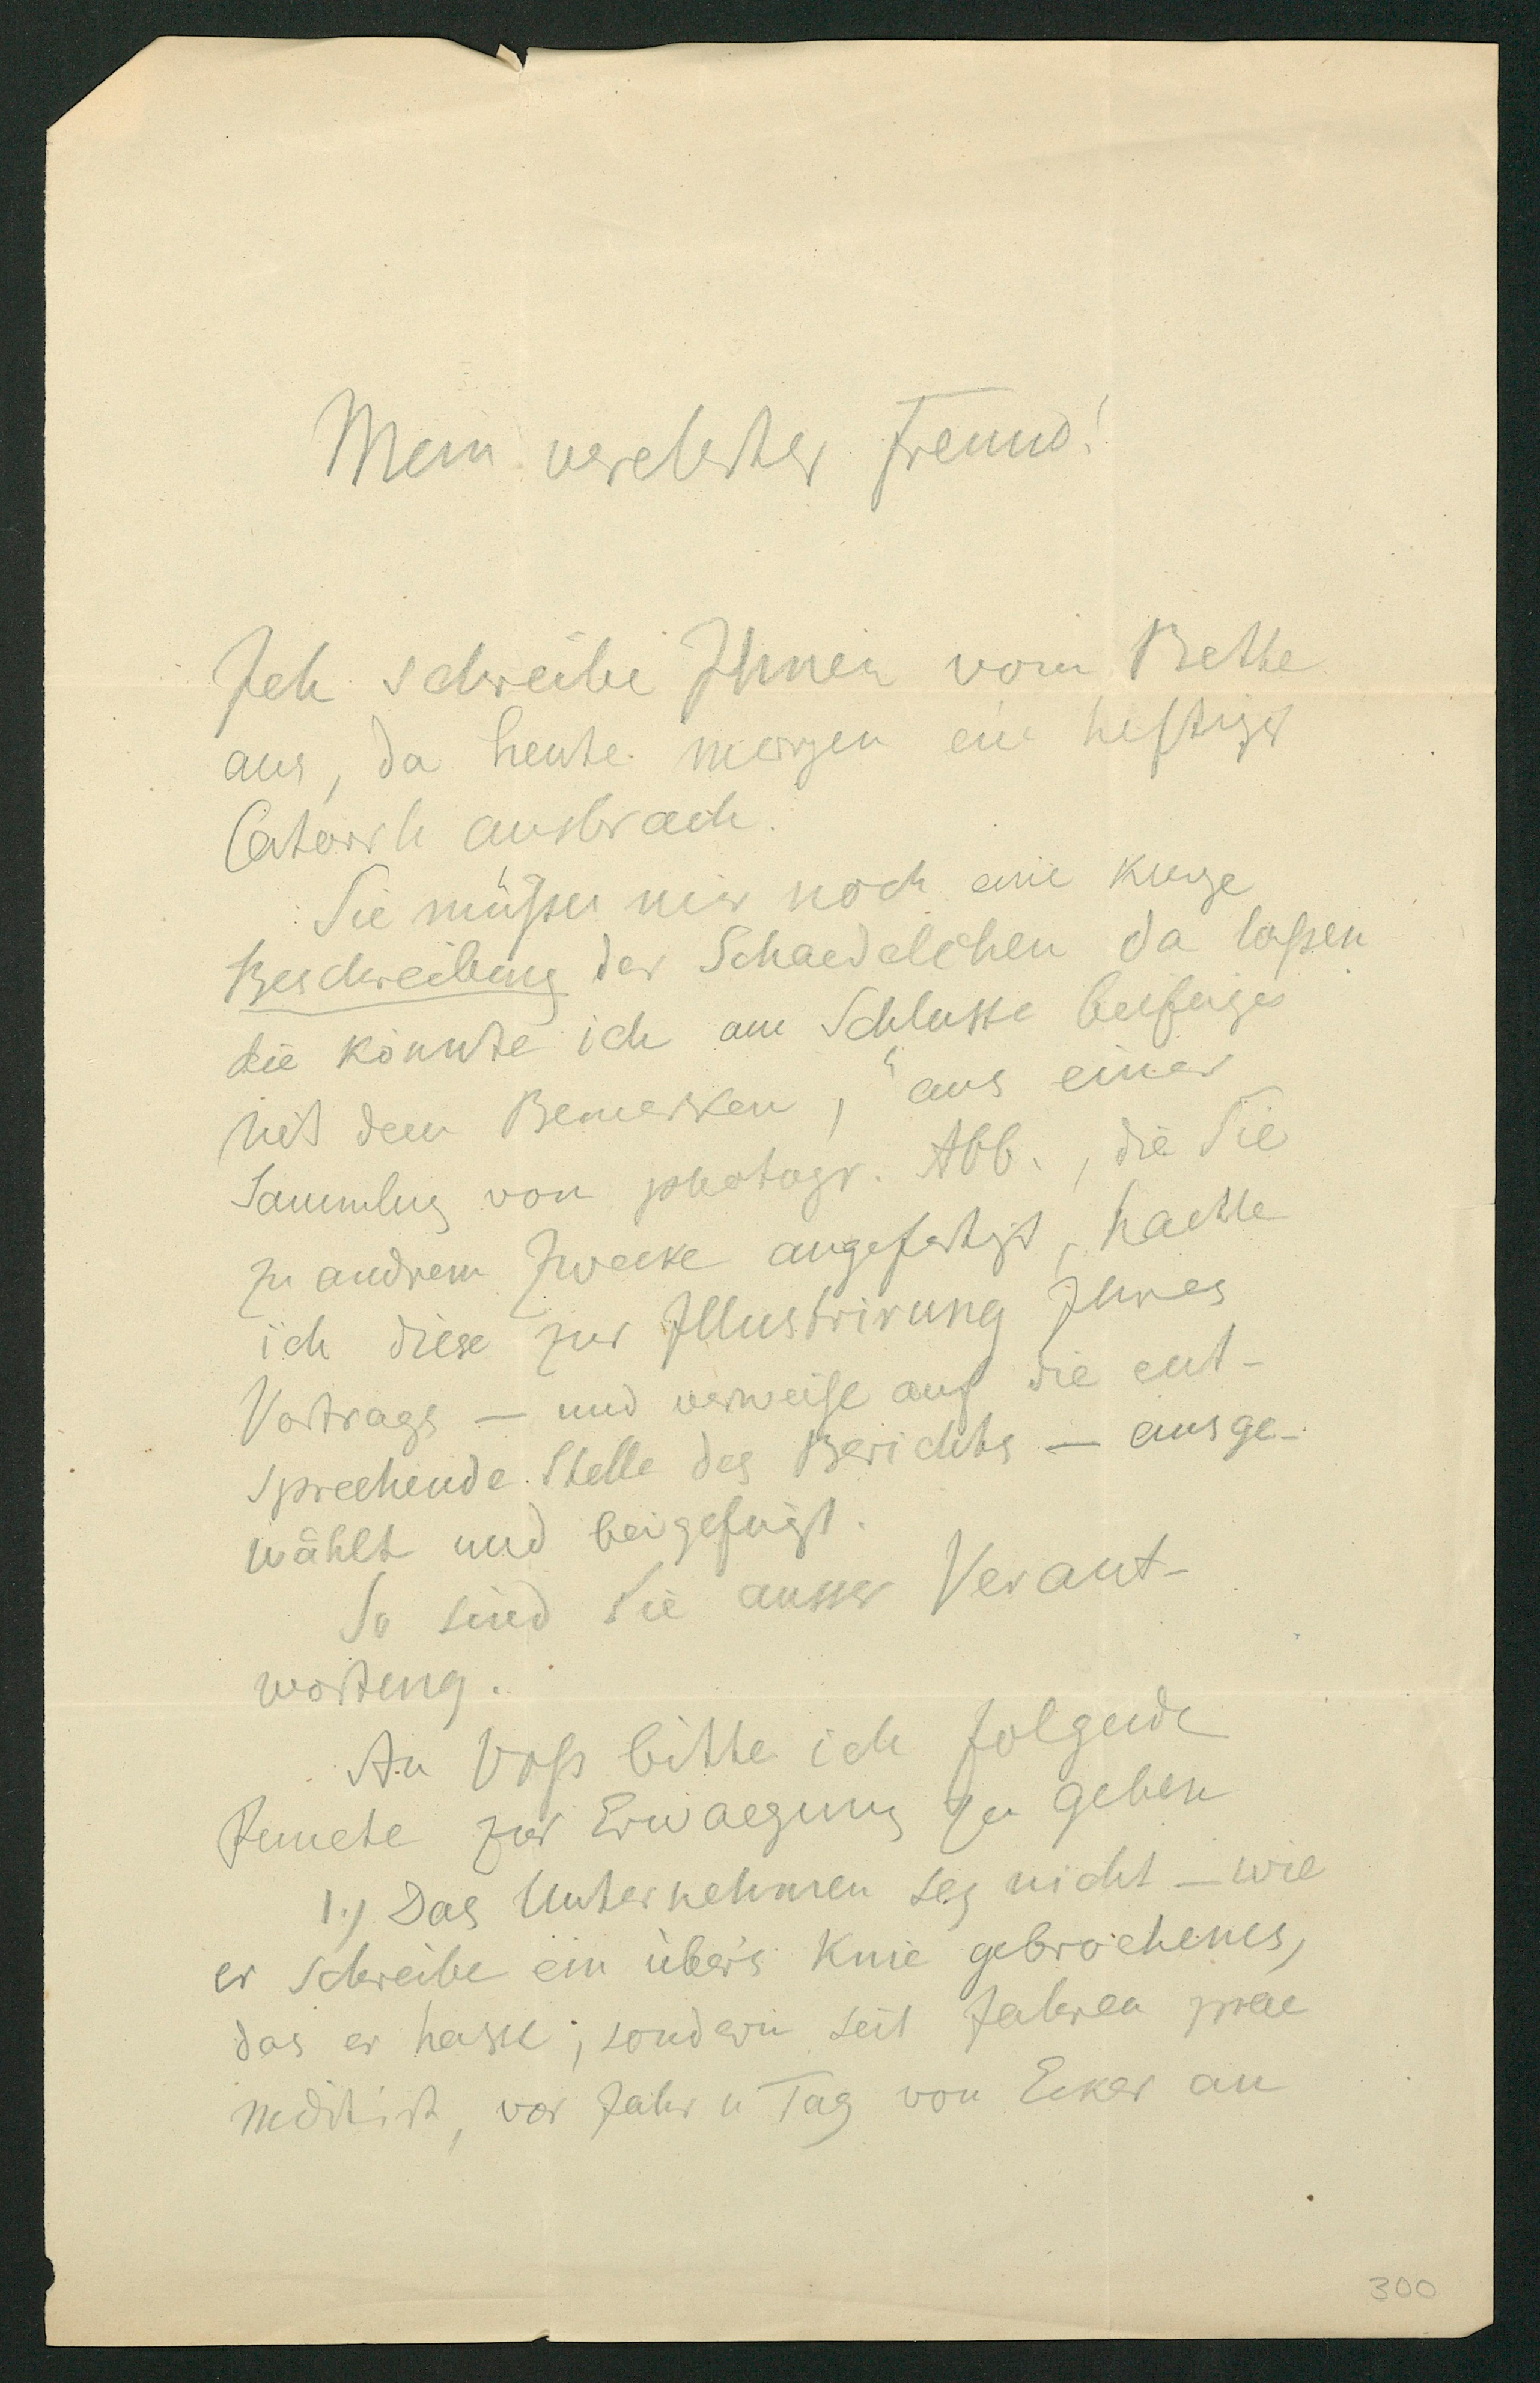 Mein verehrter Freund!
Ich schreibe Ihnen vom Bette
aus, da heute morgen ein heftiger
Catarrh ausbrach.
Sie müßen mir noch eine kurze
Beschreibung der Schaedelchen da laßen
die könnte ich am Schlusse beifügen
mit dem Bemerken, "aus einer
Sammlug von photogr. Abb., die Sie
zu andrem Zwecke angefertigt, haette
ich diese zur Illustrirung Ihres
Vortrags — und verweise auf die ent-
sprechende Stelle des Berichts — ausge-
wählt und beigefügt.
So sind Sie ausser Verant-
wortung.
An Voß bitte ich folgende
Puncte zur Erwaegung zu geben
1.) Das Unternehmen sey nicht — wie
er schreibe ein über's Knie gebrochenes,
das er hasse; sondern seit Jahren prae
meditirt, vor Jahr u Tag von Ecker an
300